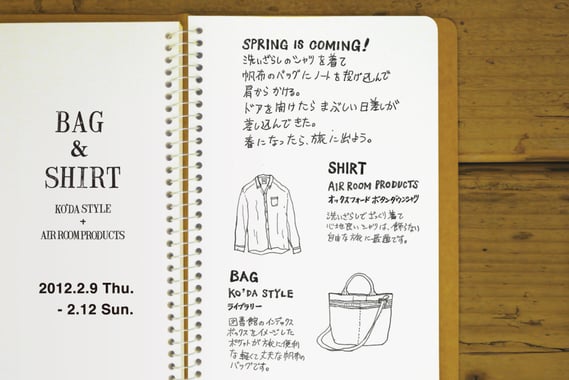 BAG
&
SHIRT
KO'DA STYLE
+
AIR ROOM PRODUCTS
2012.2.9 Thu.
- 2.12 Sun.
SPRING IS COMING!
洗いざらしのシャツを着て
帆布のバッグにノートを投げ込んで
肩からかける。
ドアを開けたら まぶしい日差しが
差し込んできた。
春になったら、旅に出よう。
SHIRT
AIR ROOM PRODUCTS
オックスフォード ボタンダウンシャツ
洗いざらしでざっくり着て
心地良いシャツは、飾らない
自由な旅に最適です。
BAG
KO'DA STYLE
ライブラリー
図書館のインデックス
ボックスをイメージした
ポケットが旅に便利
な軽くて丈夫な帆布の
バッグです。